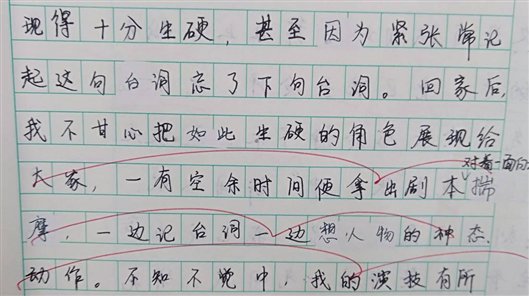 现得十分生硬，甚至因为紧张常记
起这句台词忘了下句台词。回家后，
我不甘心把如此生硬的角色展现给
对着一面向
大家，一有空余时间便拿出剧本揣
摩，一边记台词一边想人物的神态、
动作。不知不觉中，我的演技有所